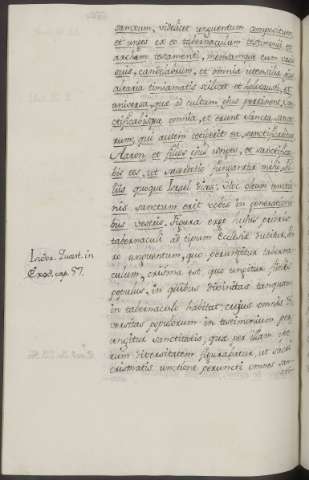 sanctum, videlicet unguentum compositum
et unges ex eo tabernaculum testimonii, et
arcam testamenti, mensamque cum vasis
suis, candelabrum, et omnia utensilia ejus
altaria thimiamatis scilicet et holocausti, et
universa, quæ ad cultum ejus pertinent, san
ctificabisque omnia, et erunt sancta sancto
rum, qui autem tetigerit ea, sanctificabitur
Aaron et filios ejus unges, et sanctifica
bis eos, ut sacerdotio fungantur mihi, fi
liis quoque Israel dices: Hoc oleum unctio
nis sanctum erit vobis in generationes
bus vestris. Figura ergo hujus veteris
tabernaculi ad tipum Ecclesiæ ducitur,
ex unguentum, quo perungitur taberna
culum, crisma est, quo ungitur fidelis
populus, in quibus divinitas tanquam
in tabernaculo habitat, cujus omnis di
versitas populorum in testimonium per
ungitur sanctitatis, quæ per illam
rum diversitatem figurabatur, ut sacri
crismatis unctione peruncti omnes san
Isidor. Quæst. in
Exod. cap. 57.